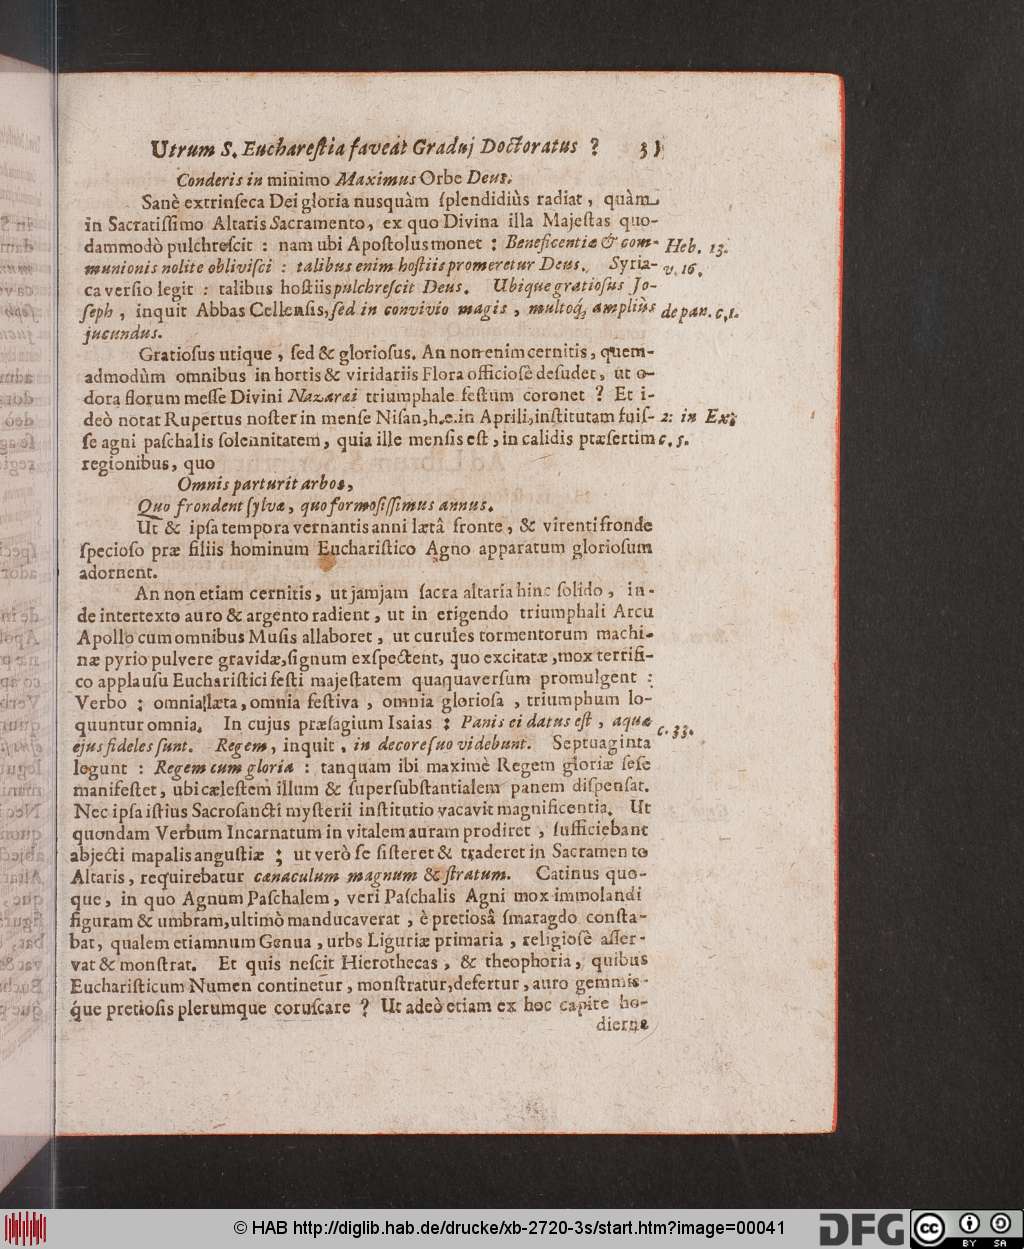 Utrum S. Euchareſtia faveat Graduj Doctoratus ? 31
Conderis in minimo Maximus Orbe Deus.
Sanè extrinſeca Dei gloria nusquàm ſplendidiùs radiat, quàm
in Sacratiſſimo Altaris Sacramento, ex quo Divina illa Majeſtas quo-
dammodò pulchreſcit : nam ubi Apoſtolus monet : Beneficentiæ & com- Heb. 13.
munionis nolite obliviſci : talibus enim hoſtiis promeretur Deus. Syria- v. 16.
ca verſio legit : talibus hoſtiis pulchreſcit Deus. Ubique gratioſus Jo-
ſeph, inquit Abbas Cellenſis, ſed in convivio magis, multoq́; ampliùs de pan. c. 1.
jucundus.
Gratioſus utique, ſed & glorioſus. An non enim cernitis, quem-
admodùm omnibus in hortis & viridariis Flora officioſè deſudet, ut o-
dora florum meſſe Divini Nazaræi triumphale feſtum coronet ? Et i-
deò notat Rupertus noſter in menſe Niſan, h.e. in Aprili, inſtitutam fuiſ- 2. in Ex.
ſe agni paſchalis ſolennitatem, quia ille menſis eſt, in calidis præſertim c. 5.
regionibus, quo
Omnis parturit arbos,
Quo frondent ſylvæ, quo formoſiſſimus annus.
Ut & ipſa tempora vernantis anni lætâ fronte, & virenti fronde
ſpecioſo præ filiis hominum Euchariſtico Agno apparatum glorioſum
adornent.
An non etiam cernitis, ut jamjam ſacra altaria hinc ſolido, in-
de intertexto auro & argento radient, ut in erigendo triumphali Arcu
Apollo cum omnibus Muſis allaboret, ut curules tormentorum machi-
næ pyrio pulvere gravidæ, ſignum exſpectent, quo excitatæ, mox terrifi-
co applauſu Euchariſtici feſti majeſtatem quaquaverſum promulgent :
Verbo : omnia læta, omnia feſtiva, omnia glorioſa, triumphum lo-
quuntur omnia. In cujus præſagium Isaias : Panis ei datus eſt, aquæ c. 33.
ejus fideles ſunt. Regem, inquit, in decore ſuo videbunt. Septuaginta
legunt : Regem cum gloria : tanquam ibi maximè Regem gloriæ ſeſe
manifeſtet, ubi cæleſtem illum & ſuperſubſtantialem panem diſpenſat.
Nec ipſa iſtius Sacroſancti myſterii inſtitutio vacavit magnificentia. Ut
quondam Verbum Incarnatum in vitalem auram prodiret, ſufficiebant
abjecti mapalis anguſtiæ ; ut verò ſe ſiſteret & traderet in Sacramento
Altaris, requirebatur cænaculum magnum & ſtratum. Catinus quo-
que, in quo Agnum Paſchalem, veri Paſchalis Agni mox immolandi
figuram & umbram, ultimò manducaverat, è pretiosâ ſmaragdo conſta-
bat, qualem etiamnum Genua, urbs Liguriæ primaria, religioſè aſſer-
vat & monſtrat. Et quis neſcit Hierothecas, & theophoria, quibus
Euchariſticum Numen continetur, monſtratur, defertur, auro gemmis-
q́ue pretioſis plerumque coruſcare ? Ut adeò etiam ex hoc capite ho-
diernæ
© HAB http://diglib.hab.de/drucke/xb-2720-3s/start.htm?image=00041
DFG
cc BY SA